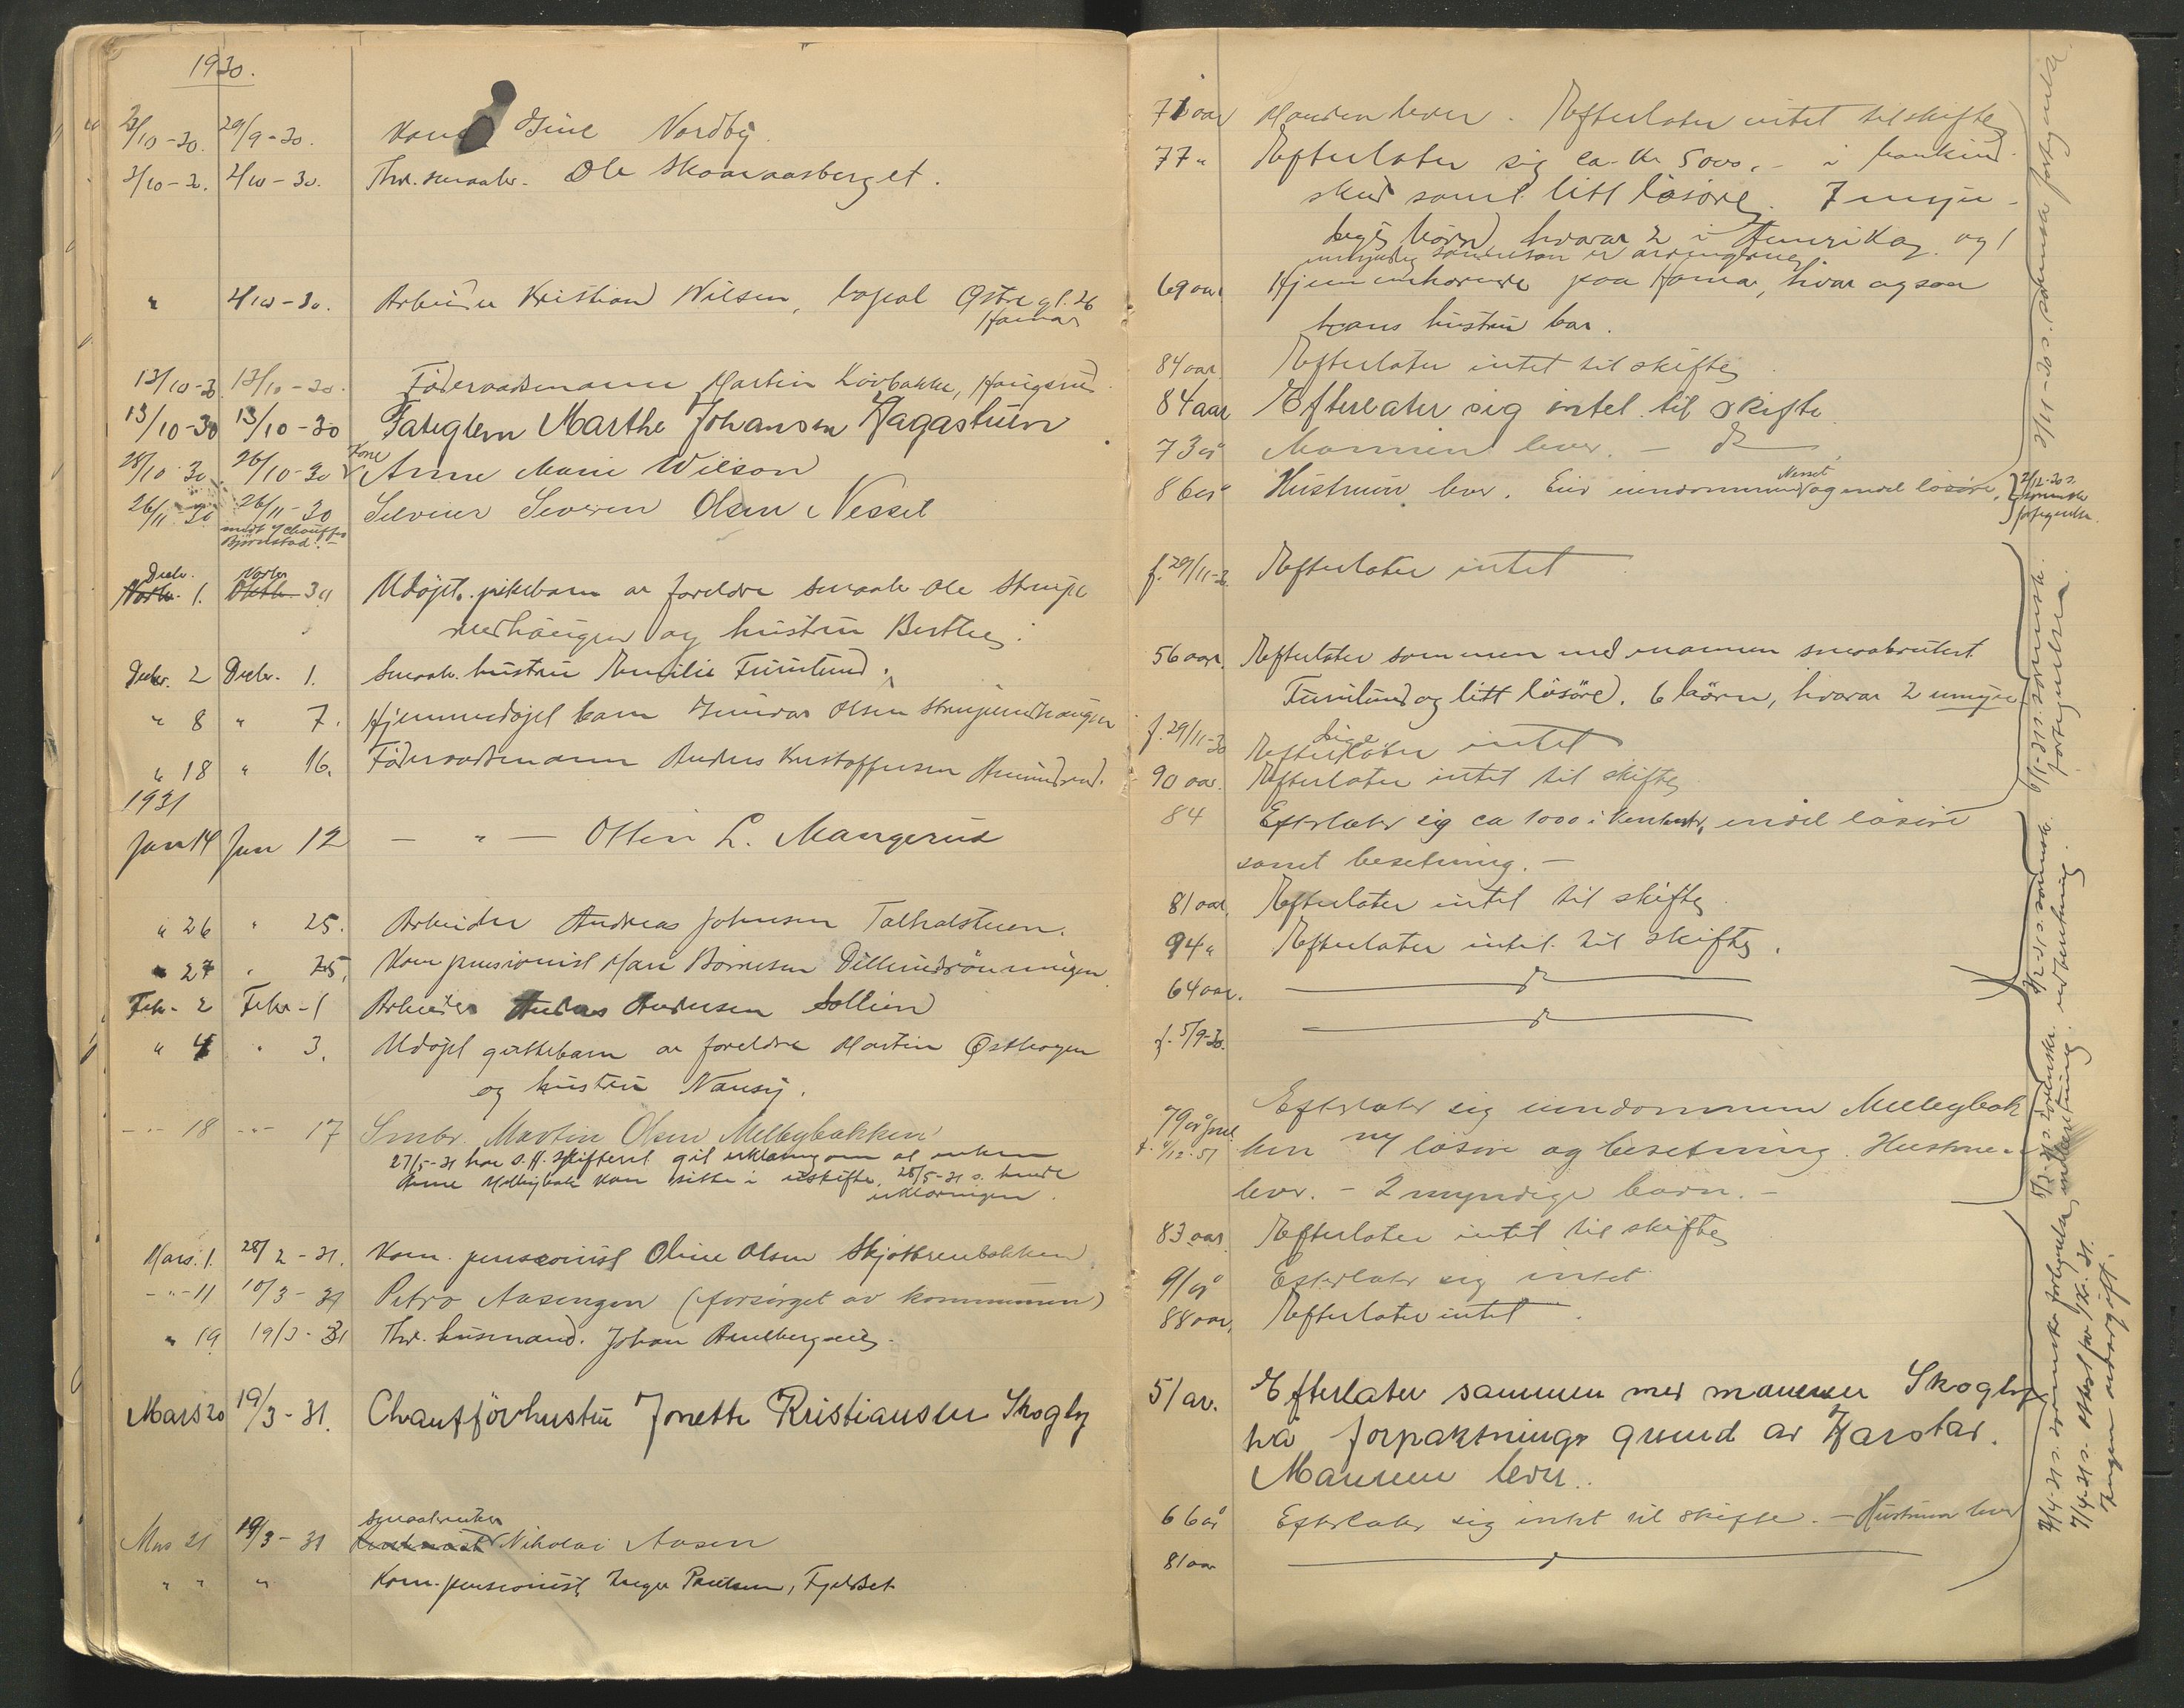 1930.
2/10-30. 29/9-30. Kone Gine Nordby.
3/10-30. 2/10-30. Fhv. smaabr. Ole Skaaraasberget.
" 2/10-30. Arbeider Kristian Nilsen, bopæl Østre gt. 26
Hamar
13/10-30 13/10-30. Föderaadsmann Martin Lövbakke, Haugsrud.
13/10-30 13/10-30 Fatiglem Marthe Johansen Hagastuen
28/10-30 26/10-30 Kone Anne Marie Wilson
26/11-30 26/11-30 Selveier Severin Olsen Nesset
meldt v/ chauffør
Bjørnstad.-
Decbr.
Novbr. 1. Novbr.
Oktbr. 30 Udöpt pikebarn av foreldre smaabr. Ole Strupe
nedhaugen og hustru Berthe.
Decbr. 2 Decbr. 1. Smaabr. hustru Emilie Furulund.
" 8 " 7. Hjemmedöpt barn Gunvor Olsen Strupenedhaugen
" 18 " 16. Föderaadsmann Anders Kristoffersen Amundrud.
1931
Jan 14 Jan 12 — " — Otter L. Mangerud
" 26 " 25. Arbeider Andreas Johnsen Talhalstuen.
" 27 " 25. Kom pensionist Mari Börresen Dillerudrönningen
Febr. 2 Febr - 1 Arbeider Andreas Andersen Sollien
" 4 " 3. Udöpt guttebarn av foreldre Martin Østhagen
og hustru Nansy.
-"- 18 -"- 17 Smbr. Martin Olsen Melbybakken
27/5-31 har S. H. Skifteret git erklæring om at enken
Anne Melbybak kan sitte i uskifte. 28/5-31 s. hende
erklæringen.
Mars. 1. 28/2-31. Kom. pensionist Oline Olsen Skjøtbreubakken
-"- 11 10/3-31 Petra Aasengen (forsörget av kommunen)
" 19 19/3-31 Fhv. husmand. Johan Amelbergseie.
Mars 20 19/3-31. Chaufförhustru Jonette Kristiansen Skogly
Mars 21 19/3-31 smaabruker Nikolai Aasen
" " " Kom. pensionist Inger Paulsen, Fjeldset
71 aar Manden lever. Efterlater intet til skifte
77 " Efterlater sig ca. Kr 5000,- i bankind-
skud samt litt lösöre. 7 myn-
dige börn, hvorav 2 i Amerika, og 1
umyndig sønnesøn er arvingerne
69 aar Hjemmehörende paa Hamar, hvor ogsaa
hans hustru bor.
84 aar Efterlater intet til skifte
84 aar Efterlater sig intet til skifte
73 år Mannen lever. - do
86 år Hustruen lever. Eier eiendommen Nesset og endel løsøre. 2/12-30 s.
sorenskr.
fortegnelse.
f. 29/11-30 Efterlater intet
56 aar. Efterlater sammen med mannen smaabruket
Furulund og litt lösöre. 6 börn, hvorav 2 umyn
dige
f. 29/11-30 Efterlater intet
90 aar. Efterlater intet til skifte
84 Efterlater sig ca 1000 i kontanter, endel løsøre
samt besetning. -
81 aar. Efterlater intet til skifte
94 " Efterlater intet til skifte.
64 aar. — do —
f. 5/9-30. — do —
79 år Efterlater sig eiendommen Melbybak
f. 4/12-51 ken m/ løsøre og besetning. Hustruen
lever. - 2 myndige barn. -
83 aar. Efterlater intet til skifte
91 år Efterlater sig intet
88 aar, Efterlater intet.
51 år. Efterlater sammen med mannen Skogly
på forpaktnings grund av Harstad.
Mannen lever.
66 år Efterlater sig intet til skifte. - Hustruen lever
81 aar — do —
2/11-30 s. sorenskr. fortegnelse.
6/1-31 s. sorenskr.
fortegnelse.
7/4-31 s. sorenskr fortegnelse
7/4-31 s.
Ingen avgift.